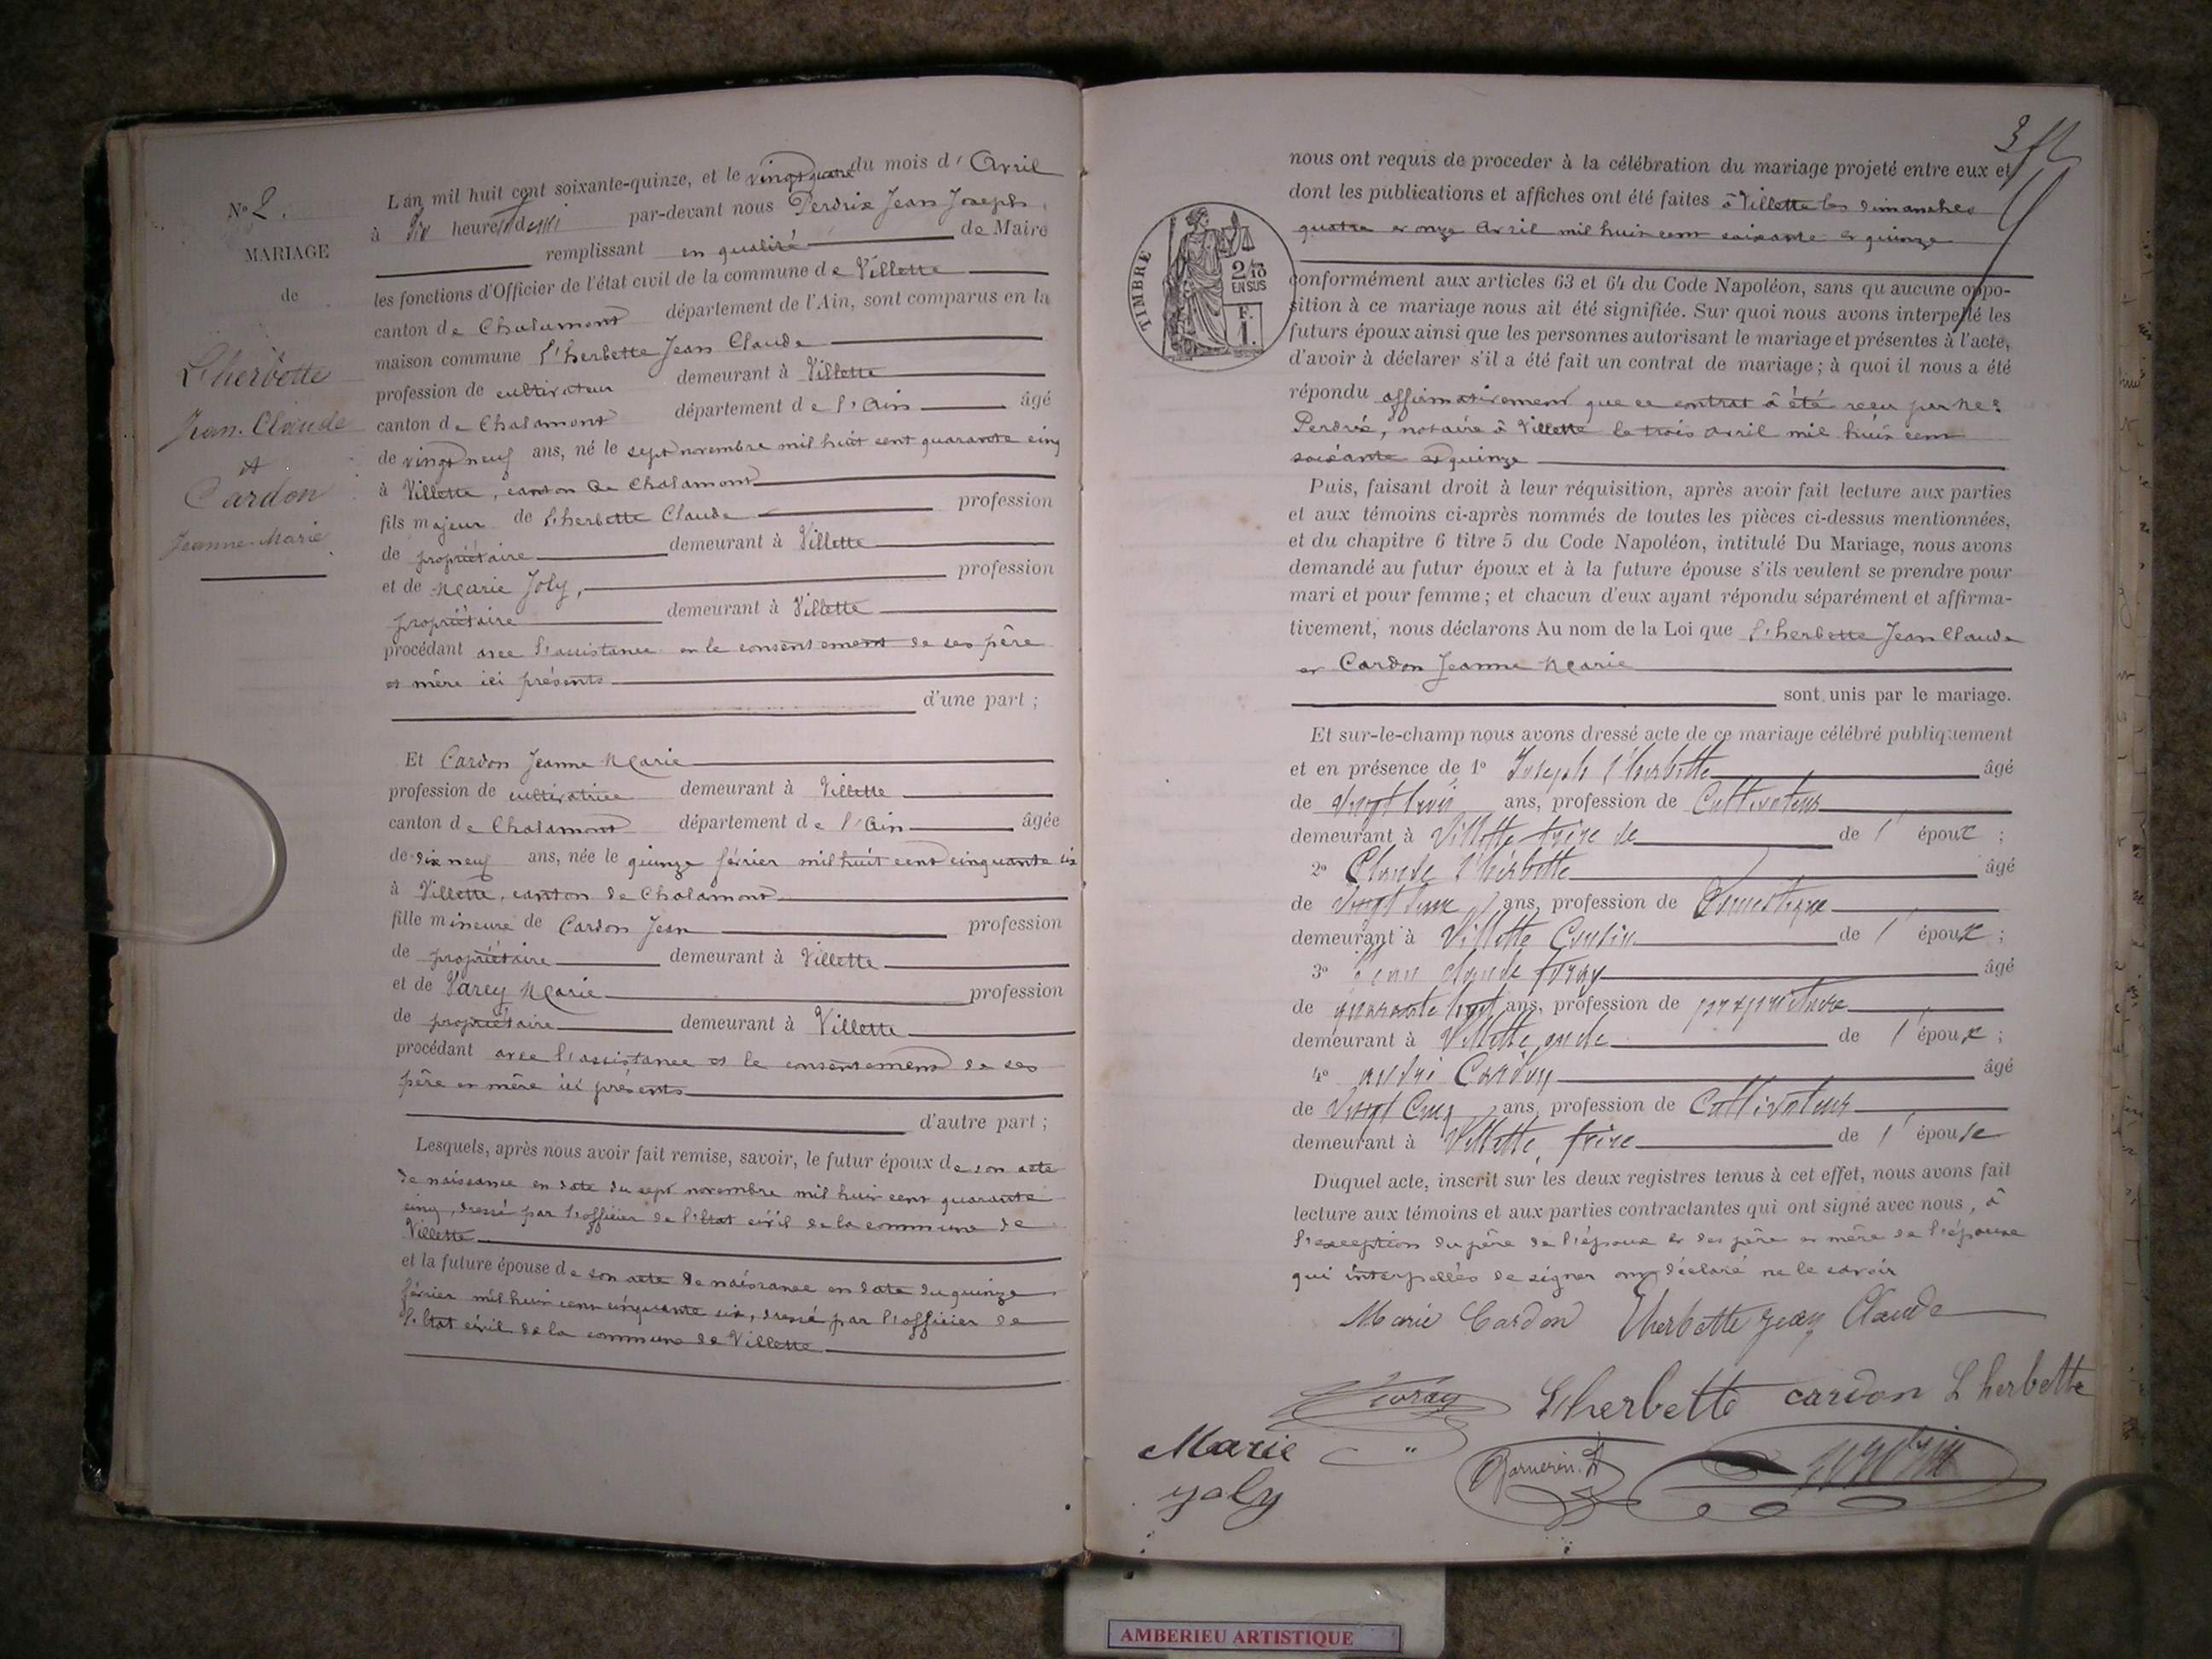 N° 2.
MARIAGE
de
L'herbette
Jean-Claude
et
Cardon
Jeanne-Marie
L'an mil huit cent soixante-quinze, et le vingt quatre du mois d'Avril
à dix heures et demi par-devant nous Perdrix Jean Joseph,
remplissant en qualité de Maire
les fonctions d'Officier de l'état civil de la commune de Villette
canton de Chalamont département de l'Ain, sont comparus en la
maison commune l'herbette Jean Claude
profession de cultivateur demeurant à Villette
canton de Chalamont département de l'Ain âgé
de vingt neuf ans, né le sept novembre mil huit cent quarante cinq
à Villette, canton de Chalamont
fils majeur de l'herbette Claude profession
de propriétaire demeurant à Villette
et de Marie Joly, profession
propriétaire demeurant à Villette
procédant avec l'assistance en le consentement de ses père
et mère ici présents
d'une part ;
Et Cardon Jeanne Marie
profession de cultivatrice demeurant à Villette
canton de Chalamont département de l'Ain âgée
de dix neuf ans, née le quinze février mil huit cent cinquante six
à Villette, canton de Chalamont
fille mineure de Cardon Jean profession
de propriétaire demeurant à Villette
et de Varey Marie profession
de propriétaire demeurant à Villette
procédant avec l'assistance et le consentement de ses
père et mère ici présents
d'autre part ;
Lesquels, après nous avoir fait remise, savoir, le futur époux de son acte
de naissance en date du sept novembre mil huit cent quarante
cinq, dressé par l'officier de l'état civil de la commune de
Villette
et la future épouse de son acte de naissance en date du quinze
février mil huit cent cinquante six, dressé par l'officier de
l'état civil de la commune de Villette
3
nous ont requis de proceder à la célébration du mariage projeté entre eux et
dont les publications et affiches ont été faites à Villette les dimanches
quatre et onze Avril mil huit cent soixante et quinze
TIMBRE
2/10
EN SUS
F.
1.
conformément aux articles 63 et 64 du Code Napoléon, sans qu'aucune oppo-
sition à ce mariage nous ait été signifiée. Sur quoi nous avons interpellé les
futurs époux ainsi que les personnes autorisant le mariage et présentes à l'acte,
d'avoir à déclarer s'il a été fait un contrat de mariage ; à quoi il nous a été
répondu affirmativement que ce contrat a été reçu par Me
Perdrix, notaire à Villette le trois avril mil huit cent
soixante et quinze
Puis, faisant droit à leur réquisition, après avoir fait lecture aux parties
et aux témoins ci-après nommés de toutes les pièces ci-dessus mentionnées,
et du chapitre 6 titre 5 du Code Napoléon, intitulé Du Mariage, nous avons
demandé au futur époux et à la future épouse s'ils veulent se prendre pour
mari et pour femme ; et chacun d'eux ayant répondu séparément et affirma-
tivement, nous déclarons Au nom de la Loi que l'herbette Jean Claude
et Cardon Jeanne Marie
sont unis par le mariage.
Et sur-le-champ nous avons dressé acte de ce mariage célébré publiquement
et en présence de 1° Joseph l'herbette âgé
de vingt trois ans, profession de Cultivateur
demeurant à Villette frère de de l'époux ;
2° Claude l'herbette âgé
de vingt ans, profession de Domestique
demeurant à Villette Cousin de l'époux ;
3° Jean claude foray âgé
de quarante huit ans, profession de propriétaire
demeurant à Villette oncle de l'époux ;
4° andré Cardon âgé
de vingt Cinq ans, profession de Cultivateur
demeurant à Villette, frère de l'épouse
Duquel acte, inscrit sur les deux registres tenus à cet effet, nous avons fait
lecture aux témoins et aux parties contractantes qui ont signé avec nous, à
l'exception du père de l'époux et des père et mère de l'épouse
qui interpellés de signer ont déclaré ne le savoir
Marie Cardon Lherbette jean Claude
foray Lherbette cardon L herbette
Marie
joly
Perdrix
AMBERIEU ARTISTIQUE